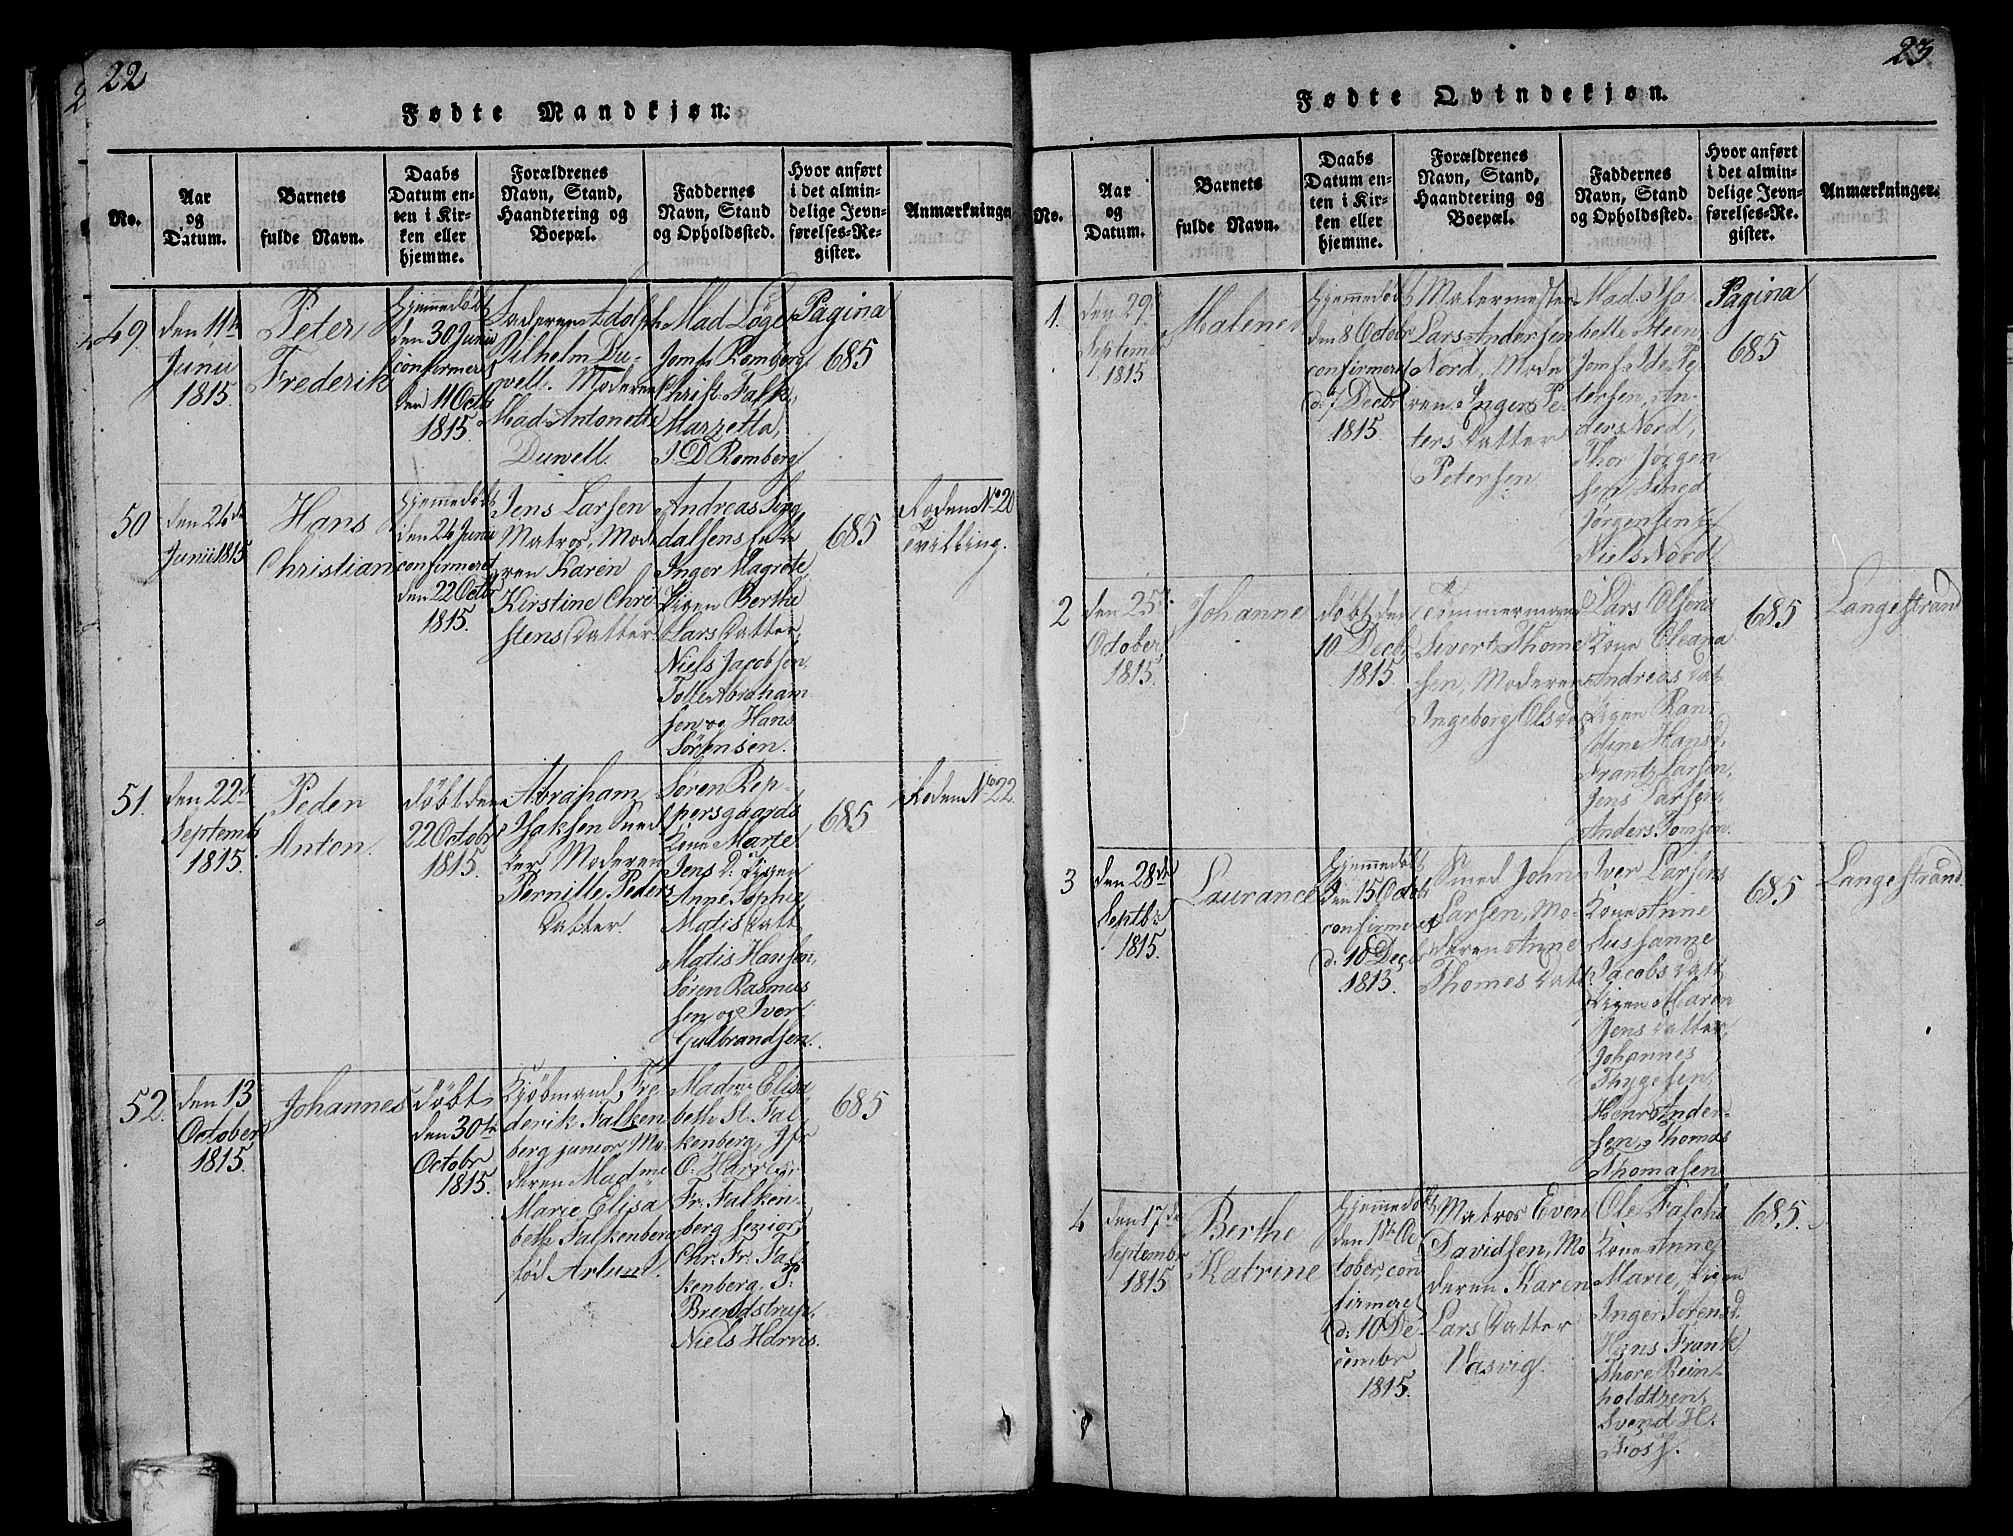 22
Fødte Mandkjøn.
No.
Aar
og
Datum.
Barnets
fulde Navn.
Daabs
Datum en-
ten i Kir-
ken eller
hjemme.
Forældrenes
Navn, Stand,
Haandtering og
Boepæl.
Faddernes
Navn, Stand
og Opholdssted.
Hvor anført
i det almin-
delige Jevn-
førelses-Re-
gister.
Anmærkninger
49.
den 11te
Junii
1815.
Peter
Frederik
Hjemmedöbt
den 30 Junii
confirmeret
den 11 Octb
1815.
Faderen Adolph
Vilhelm Du-
vell. Moderen
Mad Antonette
Duvell.
Mad Löge
Jomf. Romberg
Christ. Falk,
Marzetta,
J. D Romberg
Pagina
685
50
den 24de
Junii 1815.
Hans
Christian
Hjemmedöbt
den 24 Junii
confirmeret
den 22 Octb
1815.
Jens Larsen
Matros, Mod
ren Karen
Kirstine Chri
stens Datter
Andreas
dalsens
Inger Magrete,
Pigen Berthe
Lars Datter,
Niels Jacobsen
Tolle Abraham
sen og Hans
Sörensen.
685
Roden No 20
Tvilling.
51.
den 22de
Septemb
1815.
Peder
Anton.
döbt den
22 Octobr
1815.
Abraham
Isaksen Sned
ker Moderen
Pernille Peders
Datter.
Sören Rep-
persgaards
Kone Marte
Jens D: Pigen
Anne Sophie
Matis Datt
Matis Hansen,
Sören Rasmus
sen og Iver
Gulbrandsen.
685
Roden No 22.
52.
den 13
October
1815.
Johannes
döbt
den 30te
Octobr
1815.
Kjöbmand, Fre
derik Falken
berg junior, Mo
deren Madme
Marie Elisa
beth Falkenberg
föd Arlund.
Madme Elisa
beth St. Fal-
kenberg, Jfr
O. Harris,
Fr. Falken-
berg senior,
Chr. Fr. Fal
kenberg, P:
Brendstrup,
Niels Harris.
685
23
Fødte Qvindekjøn.
No.
Aar
og
Datum.
Barnets
fulde Navn.
Daabs
Datum en-
ten i Kir-
ken eller
hjemme.
Forældrenes
Navn, Stand,
Haandtering og
Boepæl.
Faddernes
Navn, Stand
og Opholdssted.
Hvor anført
i det almin-
delige Jevn-
førelses-Re-
gister.
Anmærkninger.
1.
den 29
Septemb
1815
Malene
Hjemmedöbt
den 8 Octobr
confirmeret
d: 1 Decbr
1815
Malermester
Lars Andersen
Nord, Mode
ren Inger Pe-
ters Datter
Petersen
Mad. Isa
belle Steen,
Jomf. Ide Pe-
tersen, An-
ders Nord,
Thor Jörgen
sen, Smed
Jörgensen
Niels Nord
Pagina
685
2
den 25de
October
1815.
Johanne
döbt den
10 Decbr
1815
Tömmermand
Sivert Thome
sen, Moderen
Ingeborg Olsdat
Lars Olsens
Kone Oleana
Andreas Dat
Pigen Ran-
dine Hansd,
Frantz Larsen,
Jens Larsen,
Anders Tomsen
685
Langestrand
3
den 28de
Septbr
1815.
Laurance
Hjemmedöbt
den 15 Octob
confirmeret
d: 10 Decbr
1815.
Smed John
Larsen, Mo-
deren Anne
Thomes Datt
Iver Larsens
Kone Anne
Sussanne
Jacobs Datt
Pigen Maren
Jens Datter,
Johannes
Thygesen,
Henr. Ander-
sen, Thomas
Thomasen
685
Langestrand.
4
den 17de
Septembr
1815
Berthe
Katrine
Hjemmedöbt
den 1ste Oc
tober, con
firmeret
d: 10 De
cembr
1815.
Matros Even
Davidsen, Mo
deren Karen
Lars Datter
Vasvig.
Ole Falche
Kone Anne
Marie, Pigen
Inger Sörensd.
Hans Frank
Thore Rein
holdtzen,
Svend H.
Foss.
685.